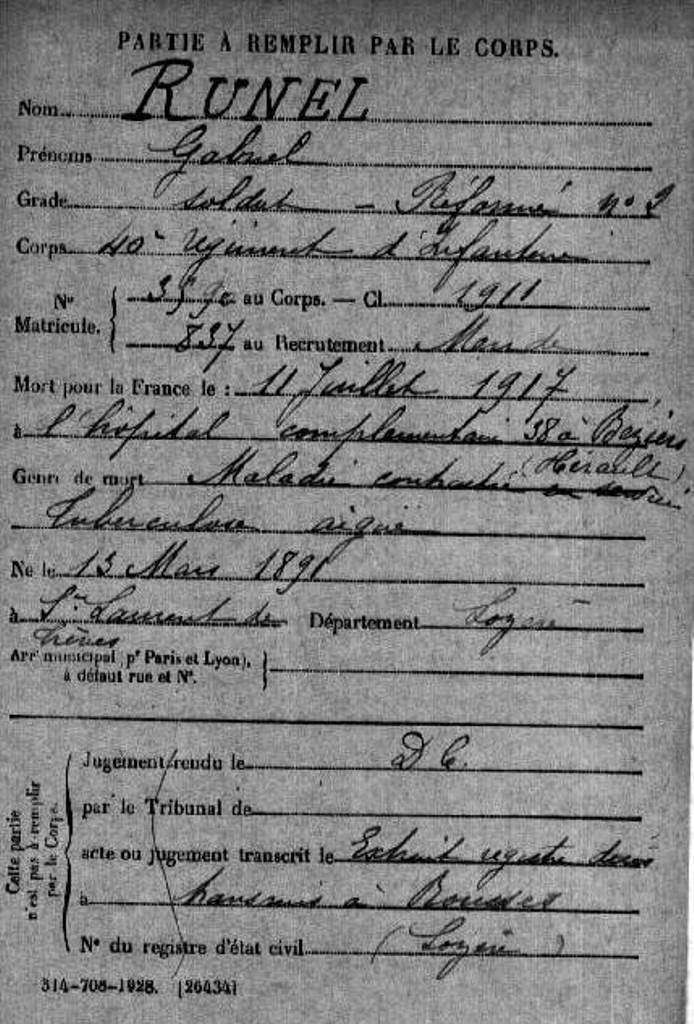 PARTIE À REMPLIR PAR LE CORPS.
Nom RUNEL
Prénoms Gabriel
Grade soldat - Réformé n° 2
Corps 40e régiment d'Infanterie
N° Matricule. { au Corps. — Cl. 1911
837 au Recrutement Mende
Mort pour la France le : 11 Juillet 1917
à l'hôpital complémentaire 38 à Béziers
(Hérault)
Genre de mort Maladie contractée en service
tuberculose aigüe
Né le 13 Mars 1891
à St Laurent de Département Lozère
Trèves
Arr' municipal (pr Paris et Lyon), }
à défaut rue et N°.
Cette partie n'est pas à remplir par le Corps.
Jugement rendu le D C.
par le Tribunal de
acte ou jugement transcrit le Extrait registre décès
à transmis à Bousses
N° du registre d'état civil (Lozère)
314-708-1928. [26434]